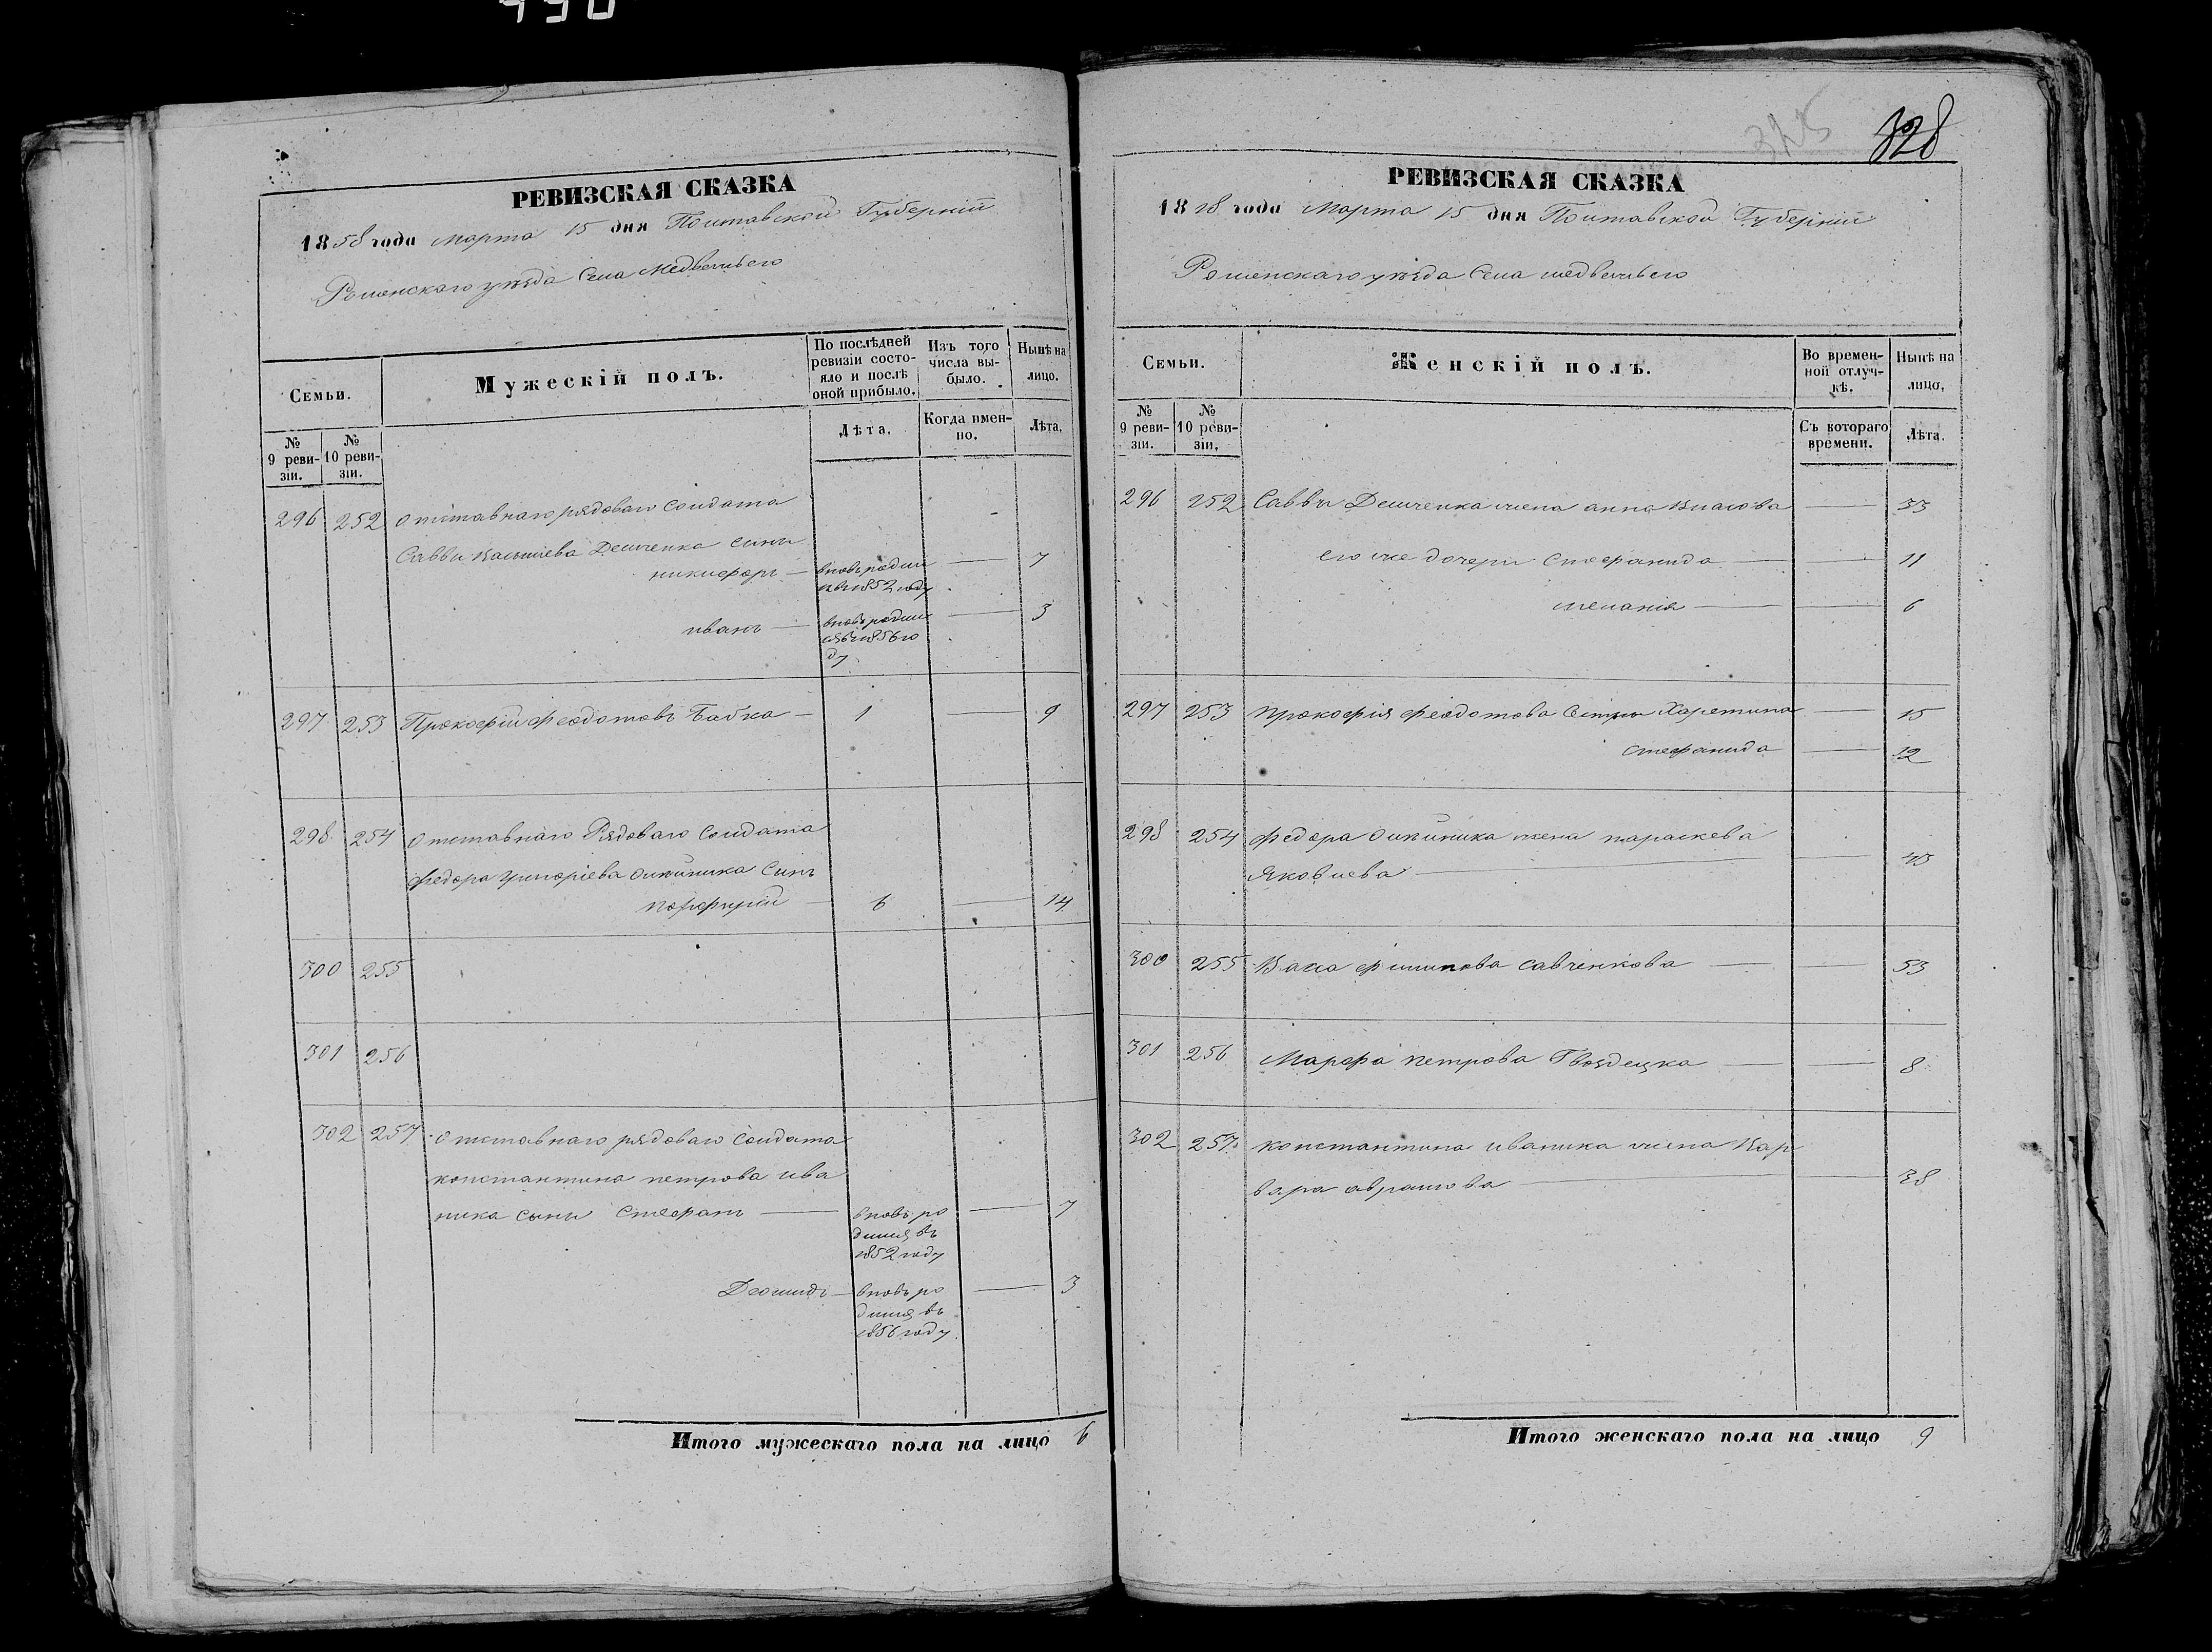 430
РЕВИЗСКАЯ СКАЗКА
1858 года марта 15 дня Полтавской Губерніи
Роменскаго уѣзда Села Медвежьего
Семьи.
Мужескій полъ.
По послѣдней ревизіи состояло и послѣ оной прибыло.
Изъ того числа выбыло.
Нынѣ на лицо.
№ 9 ревизіи.
№ 10 ревизіи.
Лѣта.
Когда именно.
Лѣта.
296 252 отставнаго рядоваго Солдата
Саввы Демченка сыны
никифоръ — вновь родил — 7
ся въ 1852 году
иванъ — вновь родил — 3
ся въ 1856 го
ду
297 253 Прокофій феодотовъ Бабка — 1 — 9
298 254 отставнаго Рядоваго Солдата
федора григоріева олійника Сынъ
порфирій — 6 — 14
300 255
301 256
302 257 отставнаго рядоваго Солдата
константина петрова ива
ника сыны Стефанъ — вновь ро — 7
дился въ
1852 году
Леонидъ — вновь ро — 3
дился въ
1856 году
Итого мужескаго пола на лицо 6
325 328
РЕВИЗСКАЯ СКАЗКА
1858 года Марта 15 дня Полтавской Губерніи
Роменскаго уѣзда Села медвежьего
Семьи.
Женскій полъ.
Во временной отлучкѣ.
Нынѣ на лицо.
№ 9 ревизіи.
№ 10 ревизіи.
Съ котораго времени.
Лѣта.
296 252 Саввы Демченка жена анна власова — 33
его же дочери Стефанида — — 11
меланія — — 6
297 253 прокофія феодотова Сестры Харетина — 15
стефанида — 12
298 254 федора олійника жена параскева
Яковлева — — 43
300 255 Васа филипова савченкова — — 53
301 256 Марфа петрова Гвоздецка — — 8
302 257 константина иваника жена Вар
вара аврамова — 38
Итого женскаго пола на лицо 9